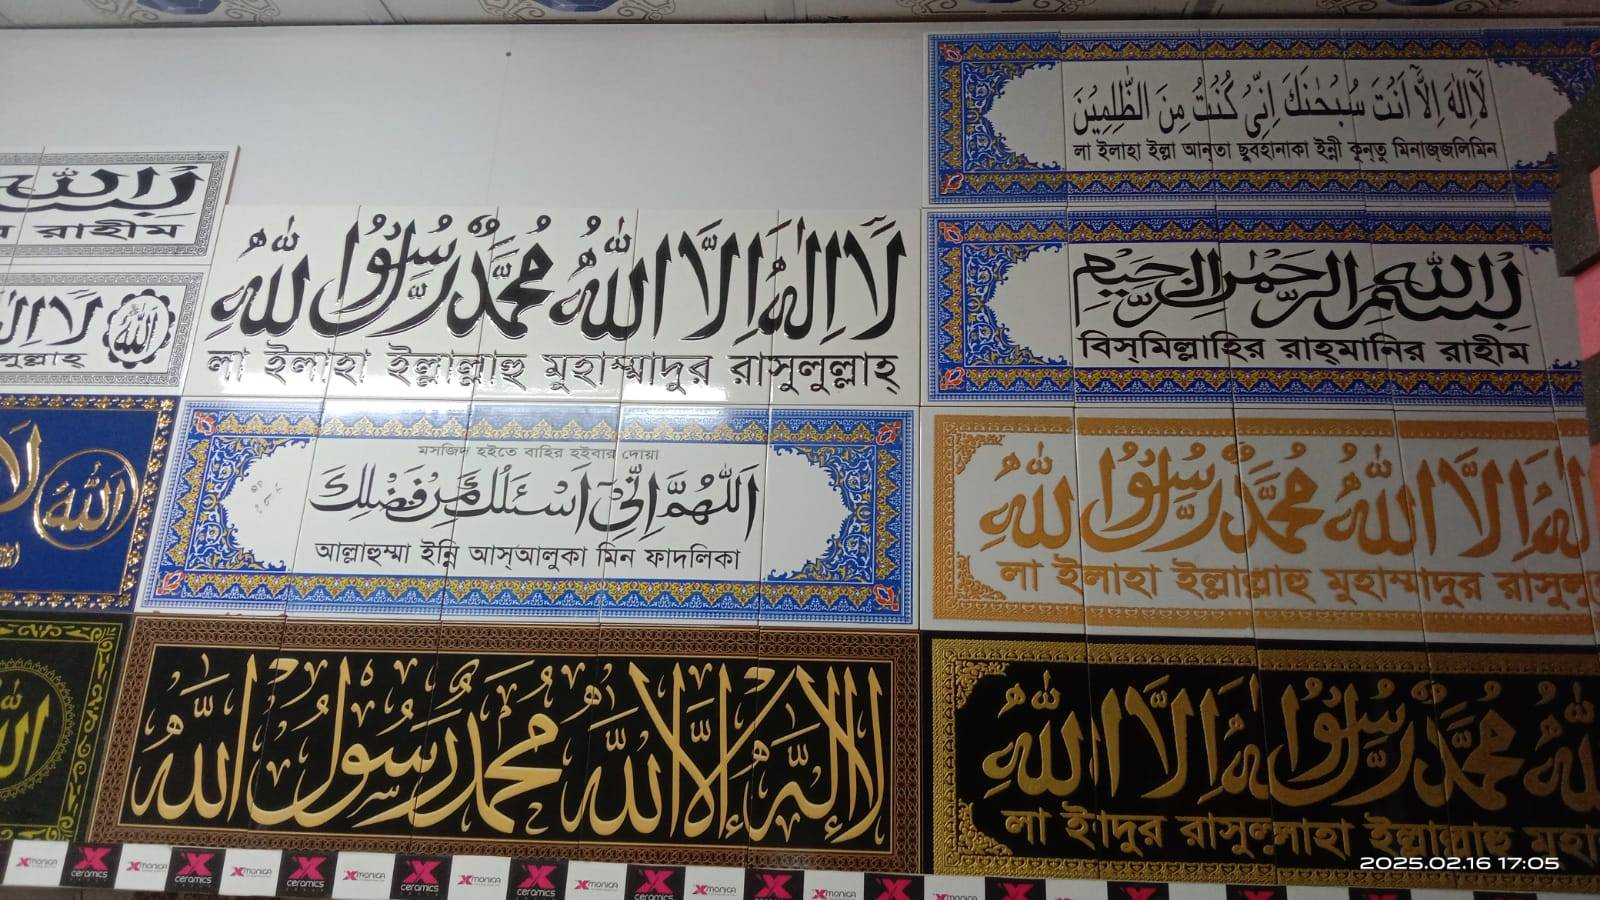 لَآ اِلٰهَ اِلَّآ اَنْتَ سُبْحٰنَكَ اِنِّىْ كُنْتُ مِنَ الظّٰلِمِيْنَ
লা ইলাহা ইল্লা আনতা ছুবহানাকা ইন্নী কুনতু মিনাজ্জলিমিন
بِسْمِ اللّٰهِ الرَّحْمٰنِ الرَّحِيْمِ
বিস্‌মিল্লাহির রাহ্‌মানির রাহীম
রাহীম
لَا اِلٰهَ اِلَّا اللّٰهُ مُحَمَّدٌ رَّسُوْلُ اللّٰهِ
লা ইলাহা ইল্লাল্লাহু মুহাম্মাদুর রাসুলুল্লাহ্
الله
মসজিদ হইতে বাহির হইবার দোয়া
اَللّٰهُمَّ اِنِّىْ اَسْئَلُكَ مِنْ فَضْلِكَ
আল্লাহুম্মা ইন্নি আস্আলুকা মিন ফাদলিকা
الله
لَا اِلٰهَ اِلَّا اللّٰهُ مُحَمَّدٌ رَّسُوْلُ اللّٰهِ
লা ইলাহা ইল্লাল্লাহু মুহাম্মাদুর রাসুলু
لا إله إلا الله محمد رسول الله
লা ই াদুর রাসুলু লাহা ইল্লাল্লাহু মুহা
X MONICA X ceramics X MONICA X ceramics X MONICA X ceramics X MONICA X ceramics X MONICA X ceramics X MONICA
2025.02.16 17:05